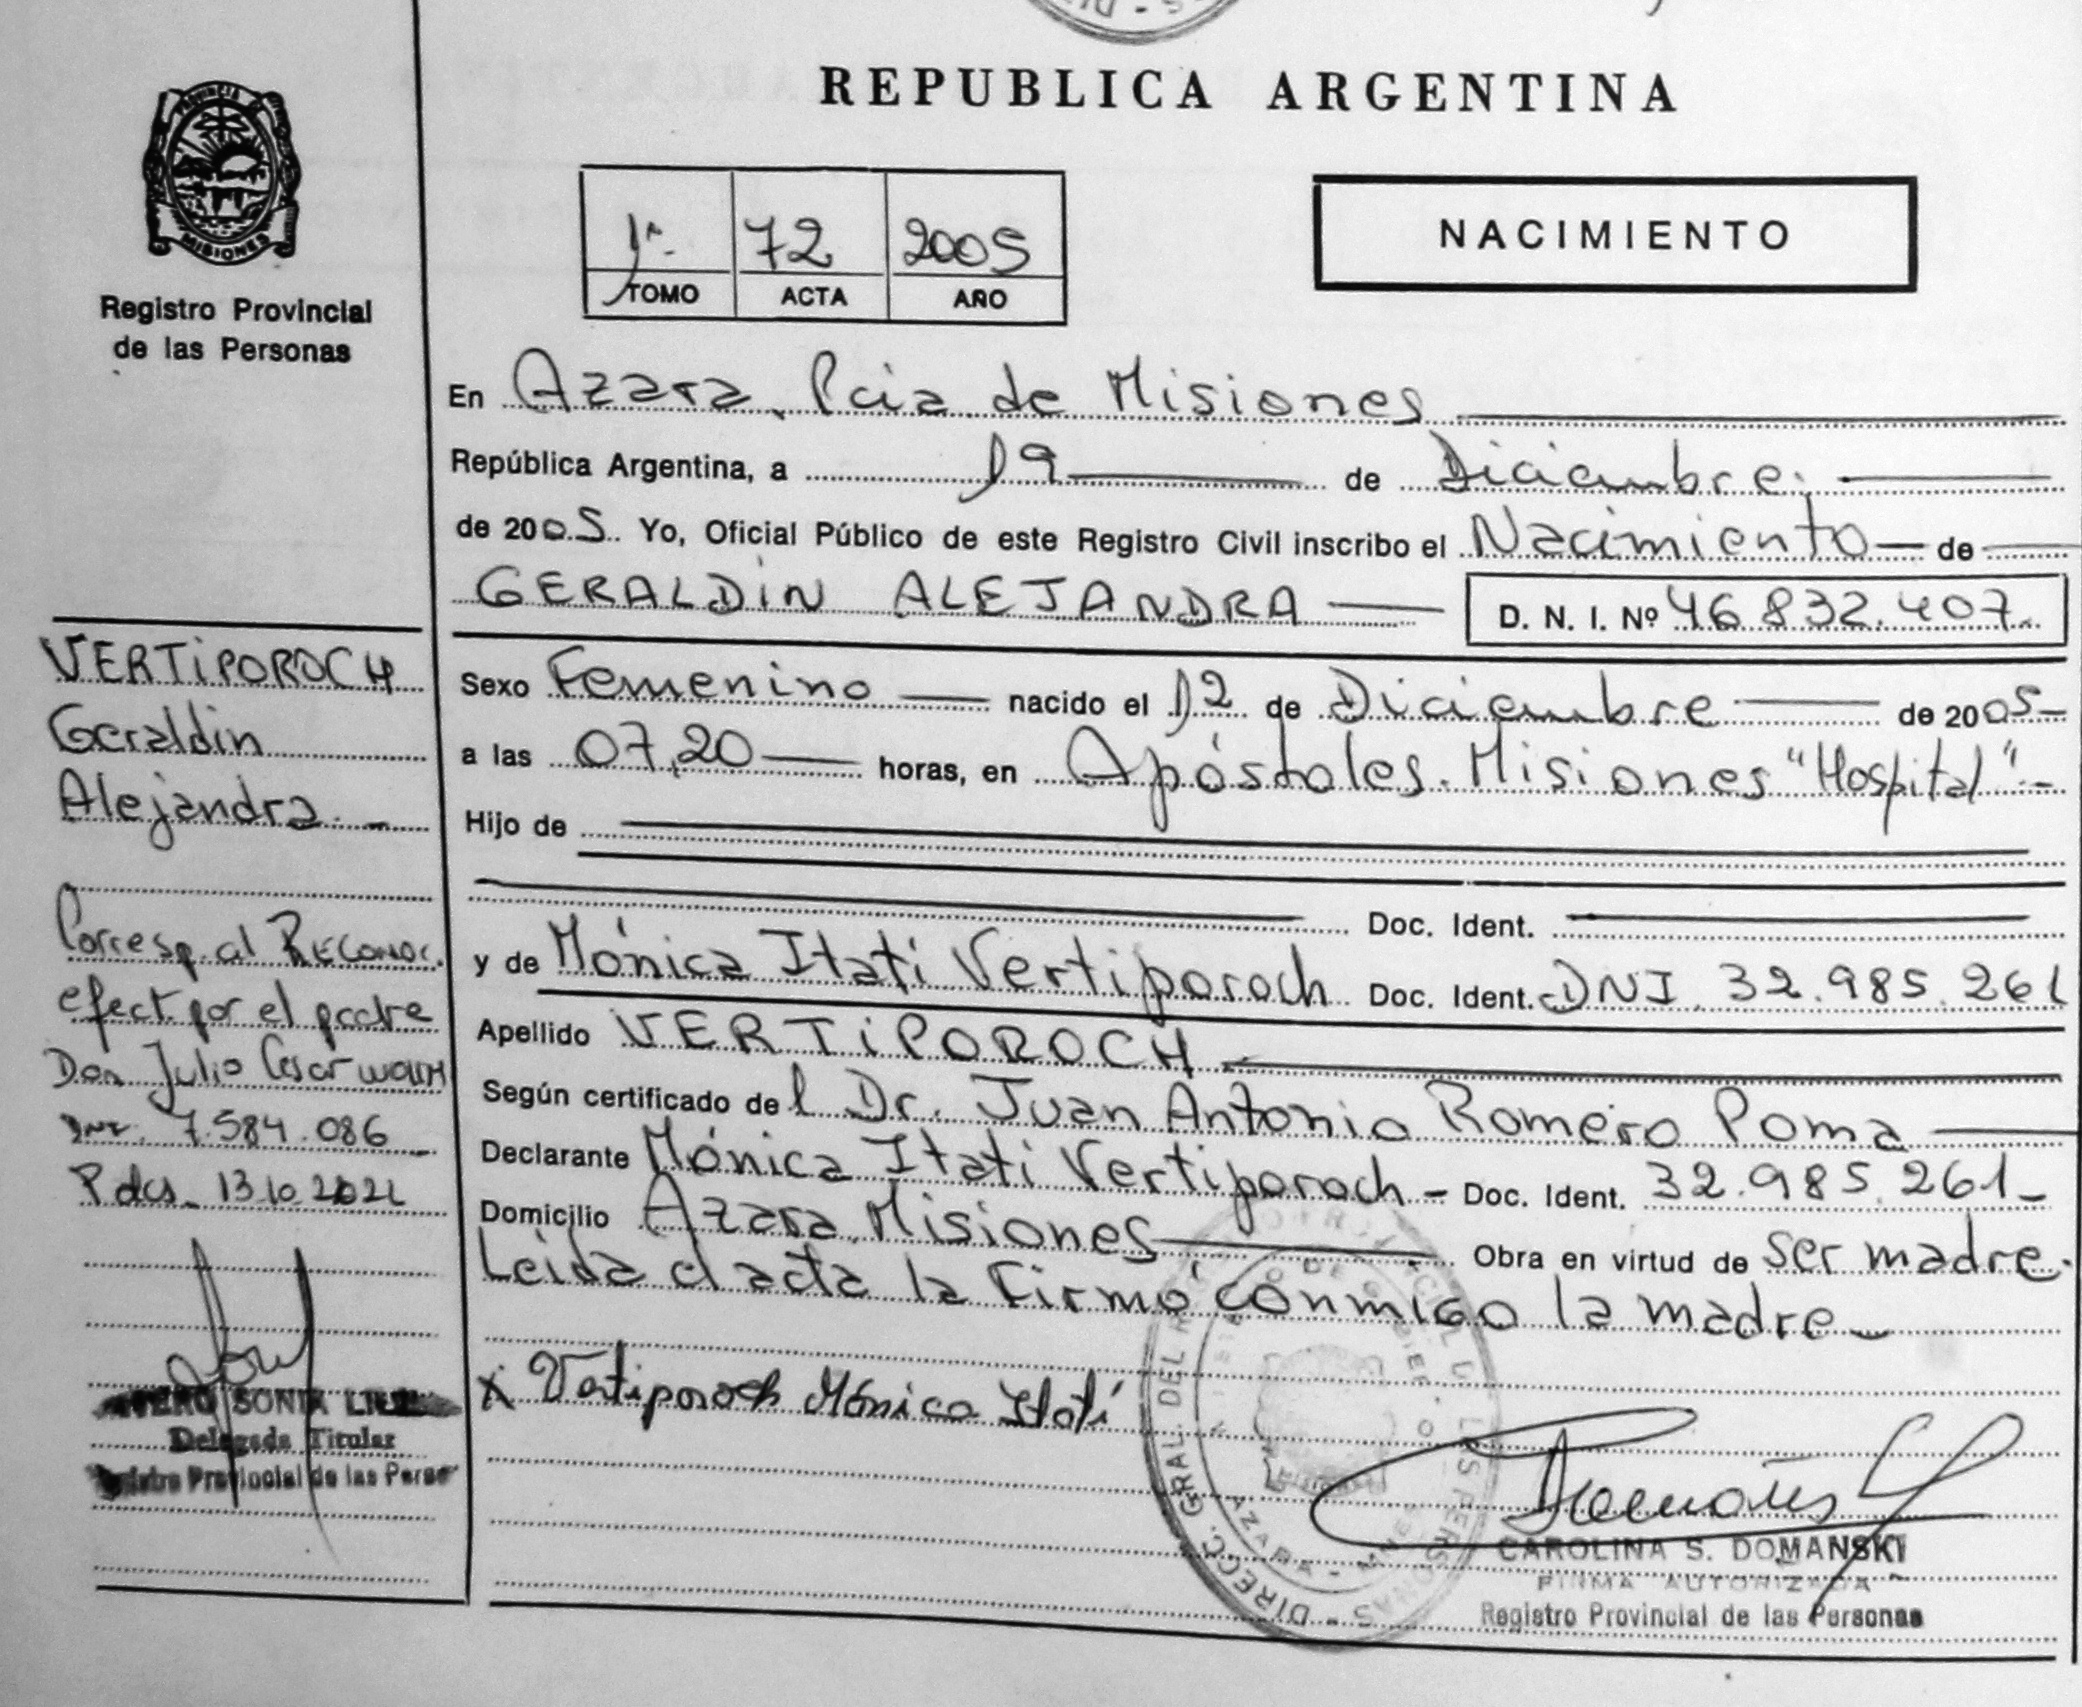 REPUBLICA ARGENTINA
PROVINCIA DE
MISIONES
Registro Provincial
de las Personas
1º 72 2005
TOMO ACTA AÑO
NACIMIENTO
En Azara, Pcia de Misiones
República Argentina, a 19 de Diciembre
de 2005 Yo, Oficial Público de este Registro Civil inscribo el Nacimiento de
GERALDIN ALEJANDRA D. N. I. Nº 46.832.407
Sexo Femenino nacido el 12 de Diciembre de 2005
a las 07,20 horas, en Apóstoles. Misiones "Hospital"
Hijo de
Doc. Ident.
y de Mónica Itatí Vertiporoch Doc. Ident. DNI 32.985.261
Apellido VERTIPOROCH
Según certificado del Dr. Juan Antonio Romero Poma
Declarante Mónica Itatí Vertiporoch - Doc. Ident. 32.985.261
Domicilio Azara, Misiones Obra en virtud de ser madre.
Leida el acta la firmó conmigo la madre
x Vertiporoch Mónica Itatí
CAROLINA S. DOMANSKI
FIRMA AUTORIZADA
Registro Provincial de las Personas
VERTIPOROCH
Geraldin
Alejandra
Corresp. al Reconoc.
efect. por el padre
Don Julio Cesar
DNI 7.584.086
SONIA
Delegada Titular
Provincial de las
DIRECC. GRAL. DEL
AZARA